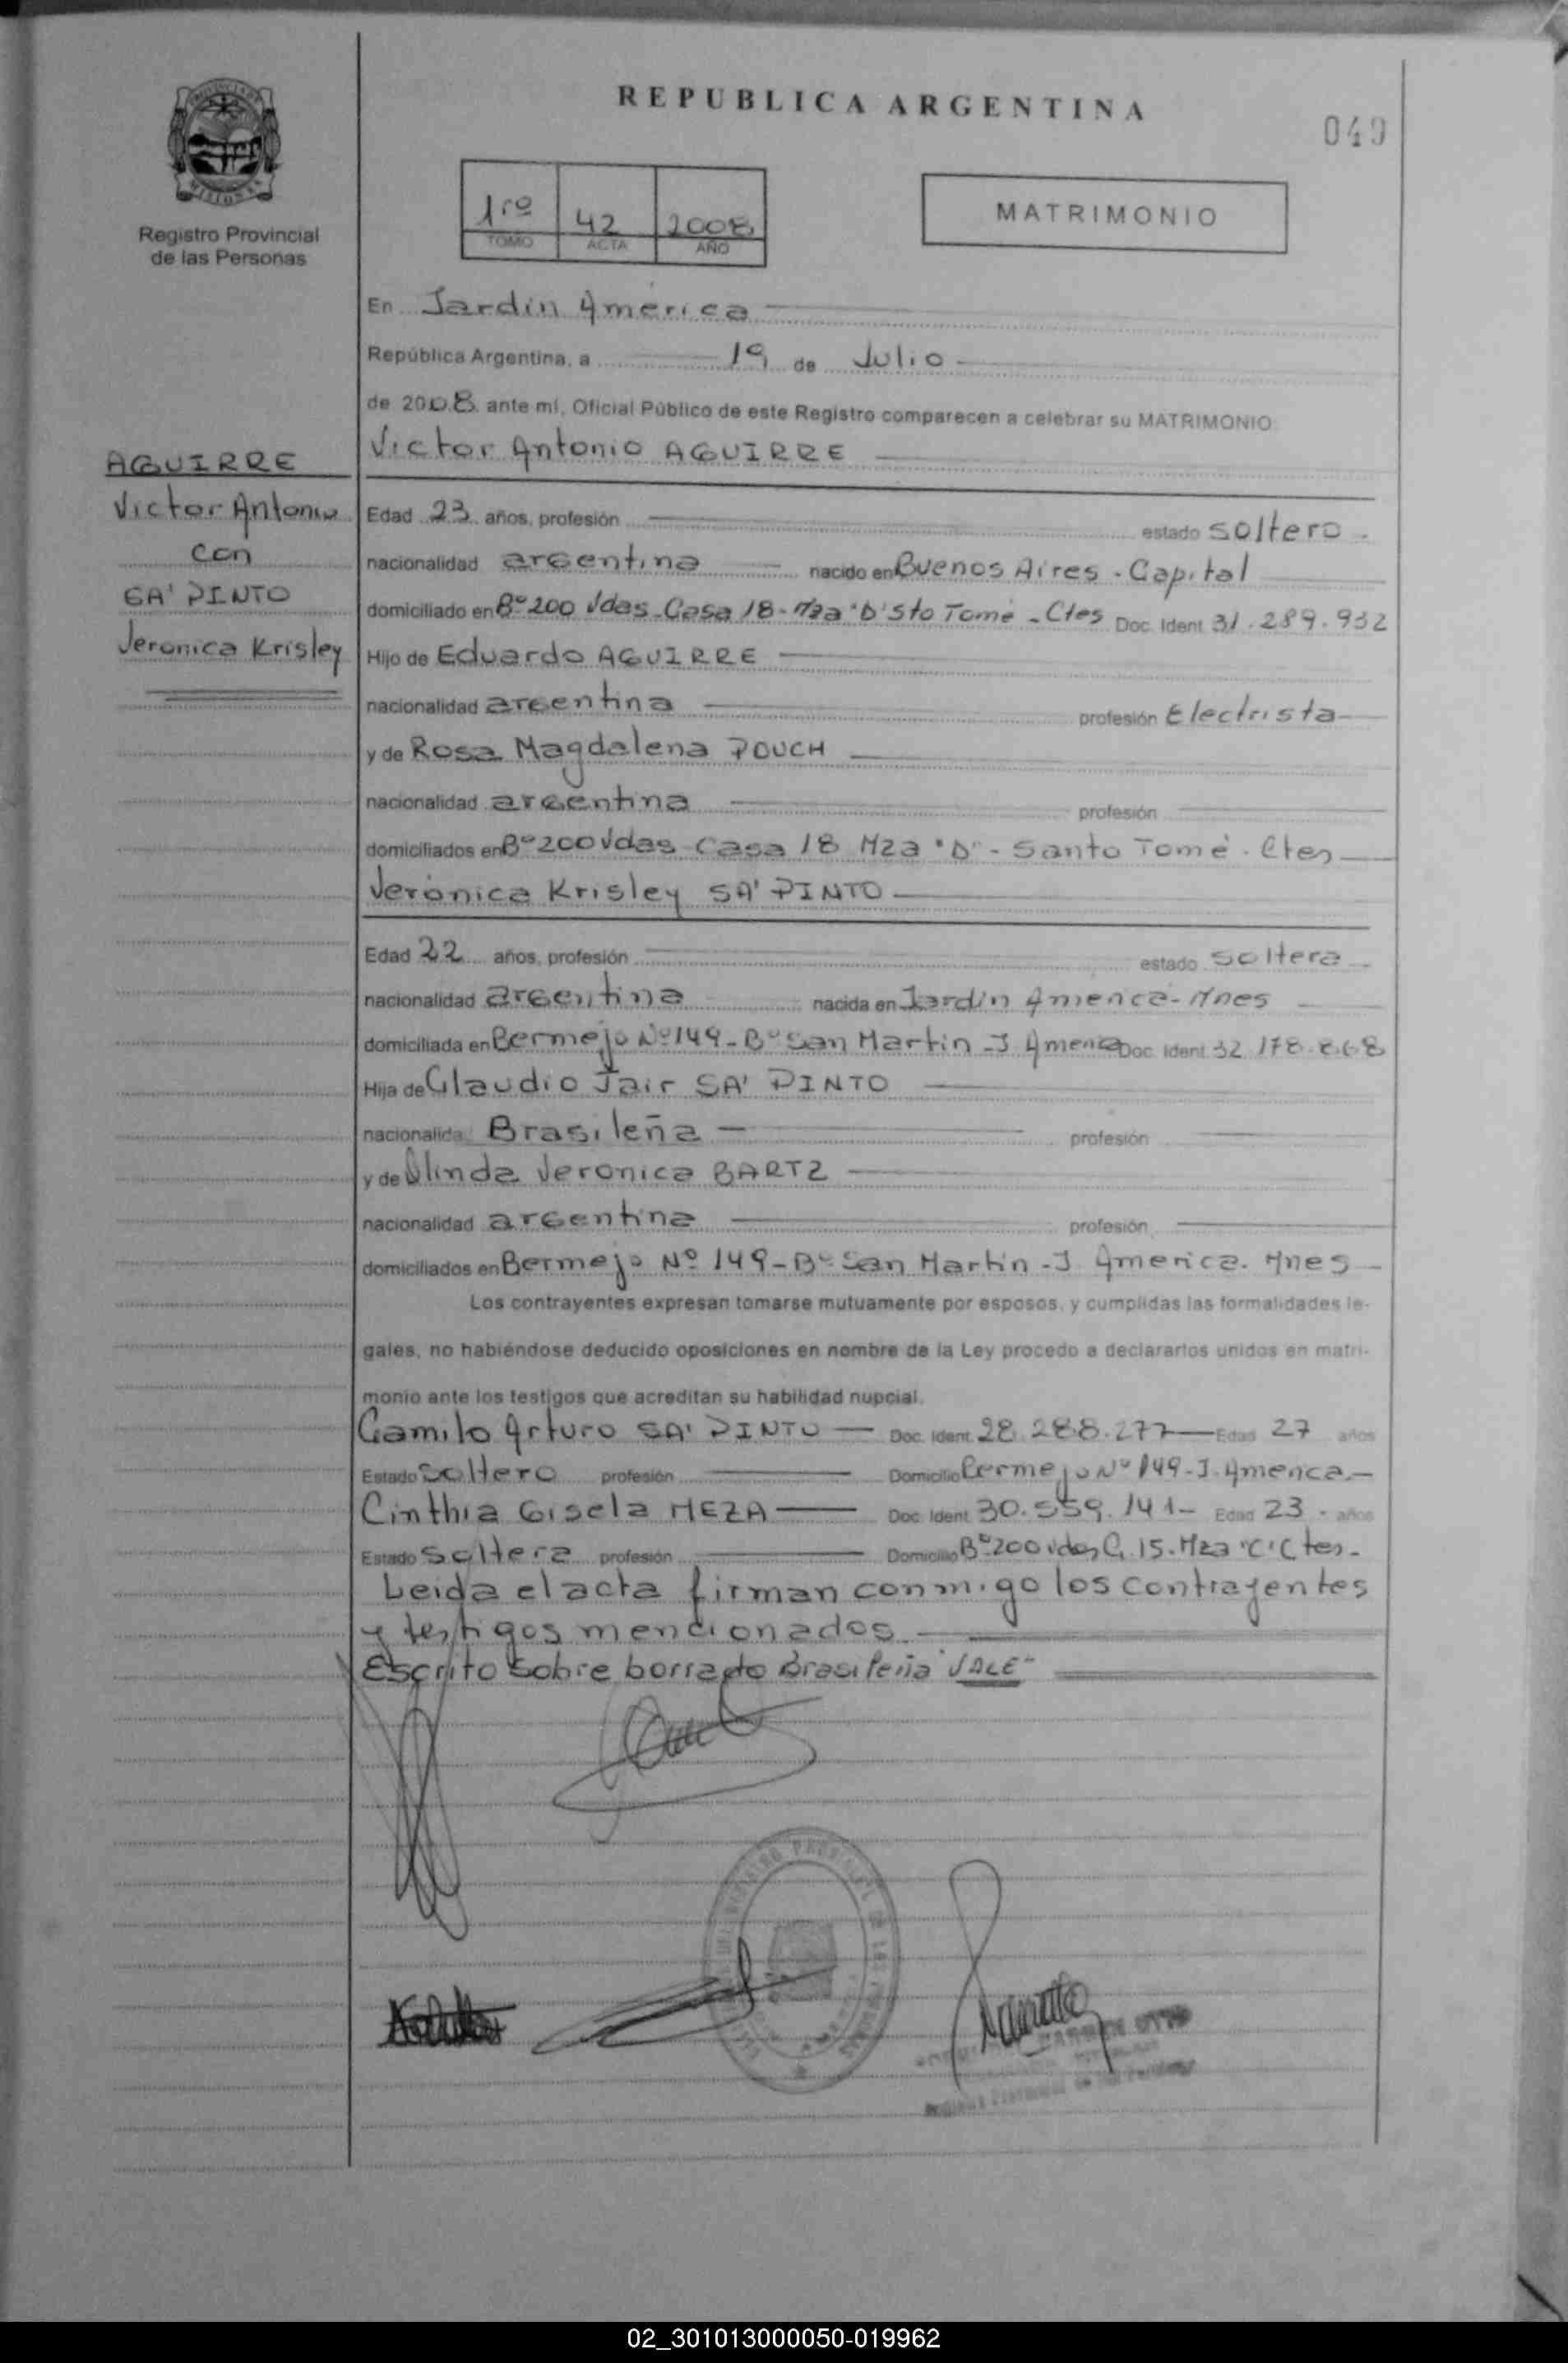 REPUBLICA ARGENTINA
049
Registro Provincial
de las Personas
1ro 42 2008
TOMO ACTA AÑO
MATRIMONIO
En Jardín América
República Argentina, a 19 de Julio
de 2008 ante mí, Oficial Público de este Registro comparecen a celebrar su MATRIMONIO
Victor Antonio AGUIRRE
AGUIRRE
Victor Antonio
con
SA' PINTO
Veronica Krisley
Edad 23 años, profesión estado soltero
nacionalidad argentina nacido en Buenos Aires - Capital
domiciliado en Bº 200 Vdas - Casa 18 - Mza "D" Sto Tomé - Ctes Doc. Ident. 31.289.932
Hijo de Eduardo AGUIRRE
nacionalidad argentina profesión Electrista
y de Rosa Magdalena POUCH
nacionalidad argentina profesión
domiciliados en Bº 200 Vdas - Casa 18 Mza "D" - Santo Tomé - Ctes
Verónica Krisley SA' PINTO
Edad 22 años, profesión estado soltera
nacionalidad argentina nacida en Jardín América - Mnes
domiciliada en Bermejo Nº 149 - Bº San Martin - J. América Doc. Ident. 32.178.868
Hija de Claudio Jair SA' PINTO
nacionalida Brasileña profesión
y de Olinda Veronica BARTZ
nacionalidad argentina profesión
domiciliados en Bermejo Nº 149 - Bº San Martín - J América - Mnes
Los contrayentes expresan tomarse mutuamente por esposos, y cumplidas las formalidades le-
gales, no habiéndose deducido oposiciones en nombre de la Ley procedo a declararlos unidos en matri-
monio ante los testigos que acreditan su habilidad nupcial.
Camilo Arturo SA' PINTO Doc. Ident. 28.288.277 Edad 27 años
Estado Soltero profesión Domicilio Bermejo Nº 149 - J. América
Cinthia Gisela MEZA Doc. Ident. 30.559.141 - Edad 23 años
Estado Soltera profesión Domicilio Bº 200 vdas C. 15 - Mza "C" Ctes -
Leida el acta firman conmigo los contrayentes
y testigos mencionados
Escrito sobre borrado Brasileña "VALE"
02_301013000050-019962